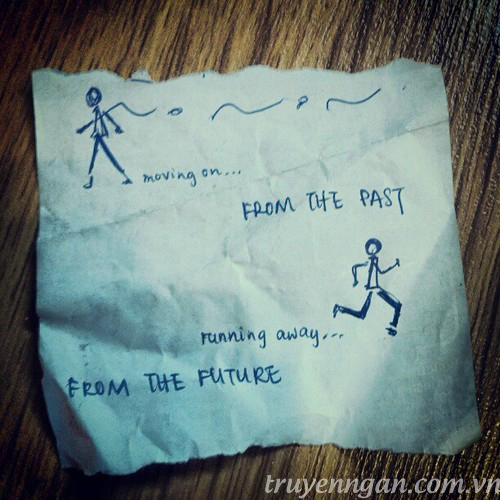 moving on...
FROM THE PAST
running away...
FROM THE FUTURE
truyenngan.com.vn